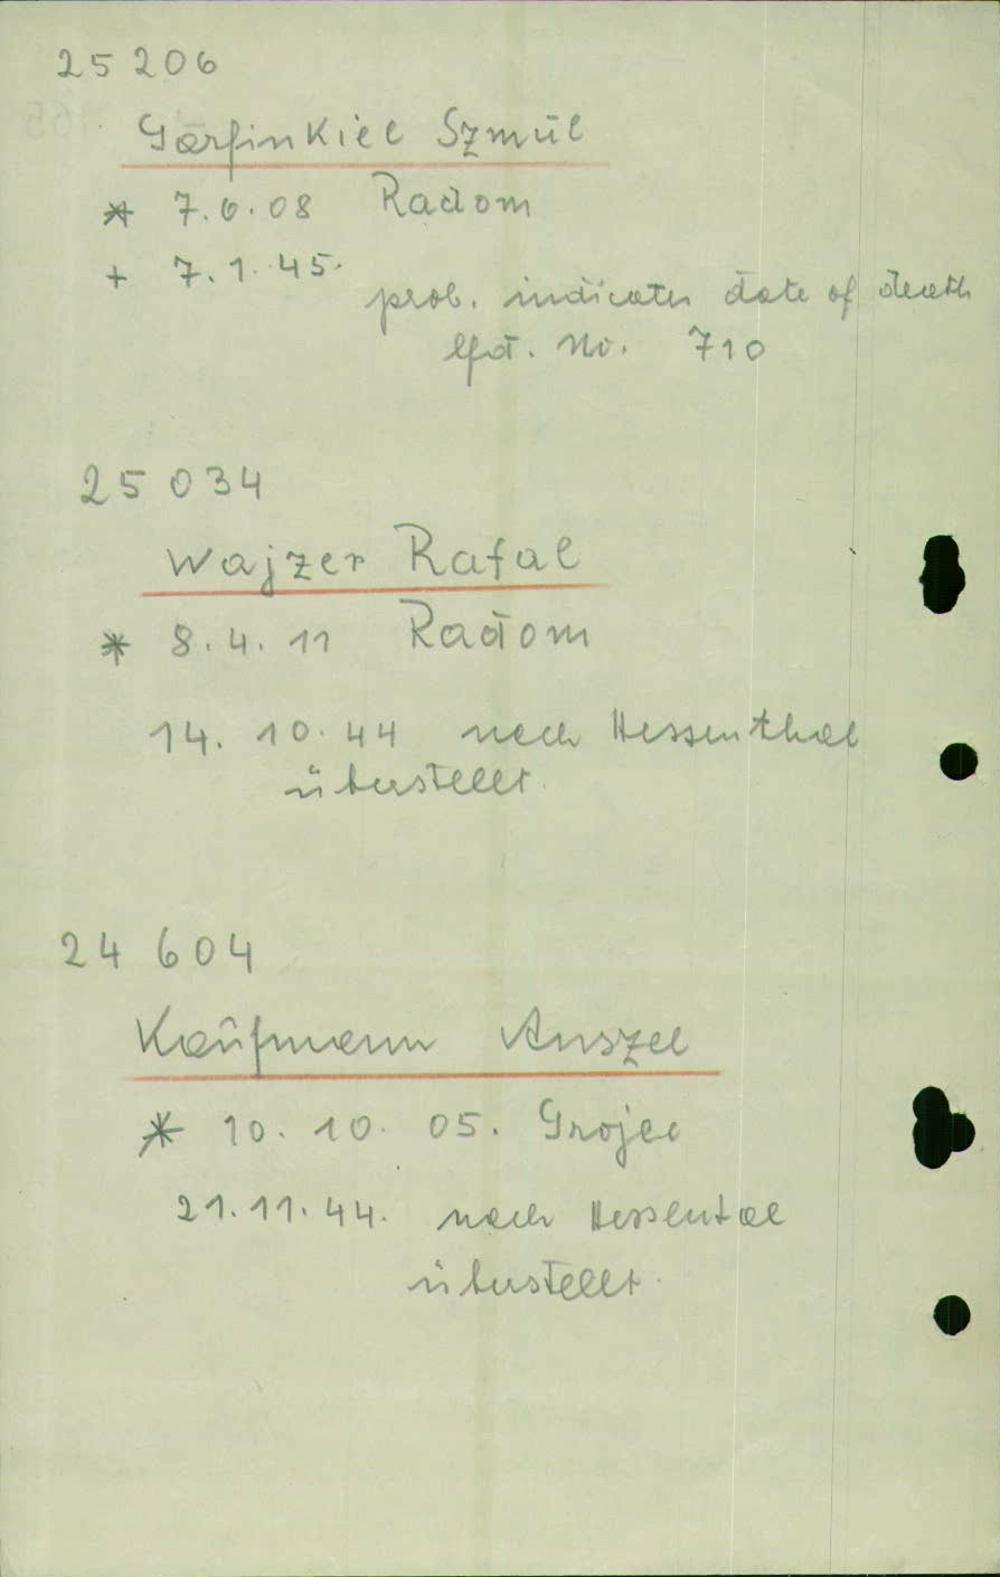 25 206
Garfinkiel Szmul
* 7.6.08 Radom
+ 7.1.45.
prob. indicates date of death
lfd. No. 710
25 034
Wajzer Rafal
* 8.4.11 Radom
14. 10. 44 nach Hessenthal
überstellt.
24 604
Kaufmann Auszel
* 10. 10. 05. Grojec
21. 11. 44. nach Hessental
überstellt.